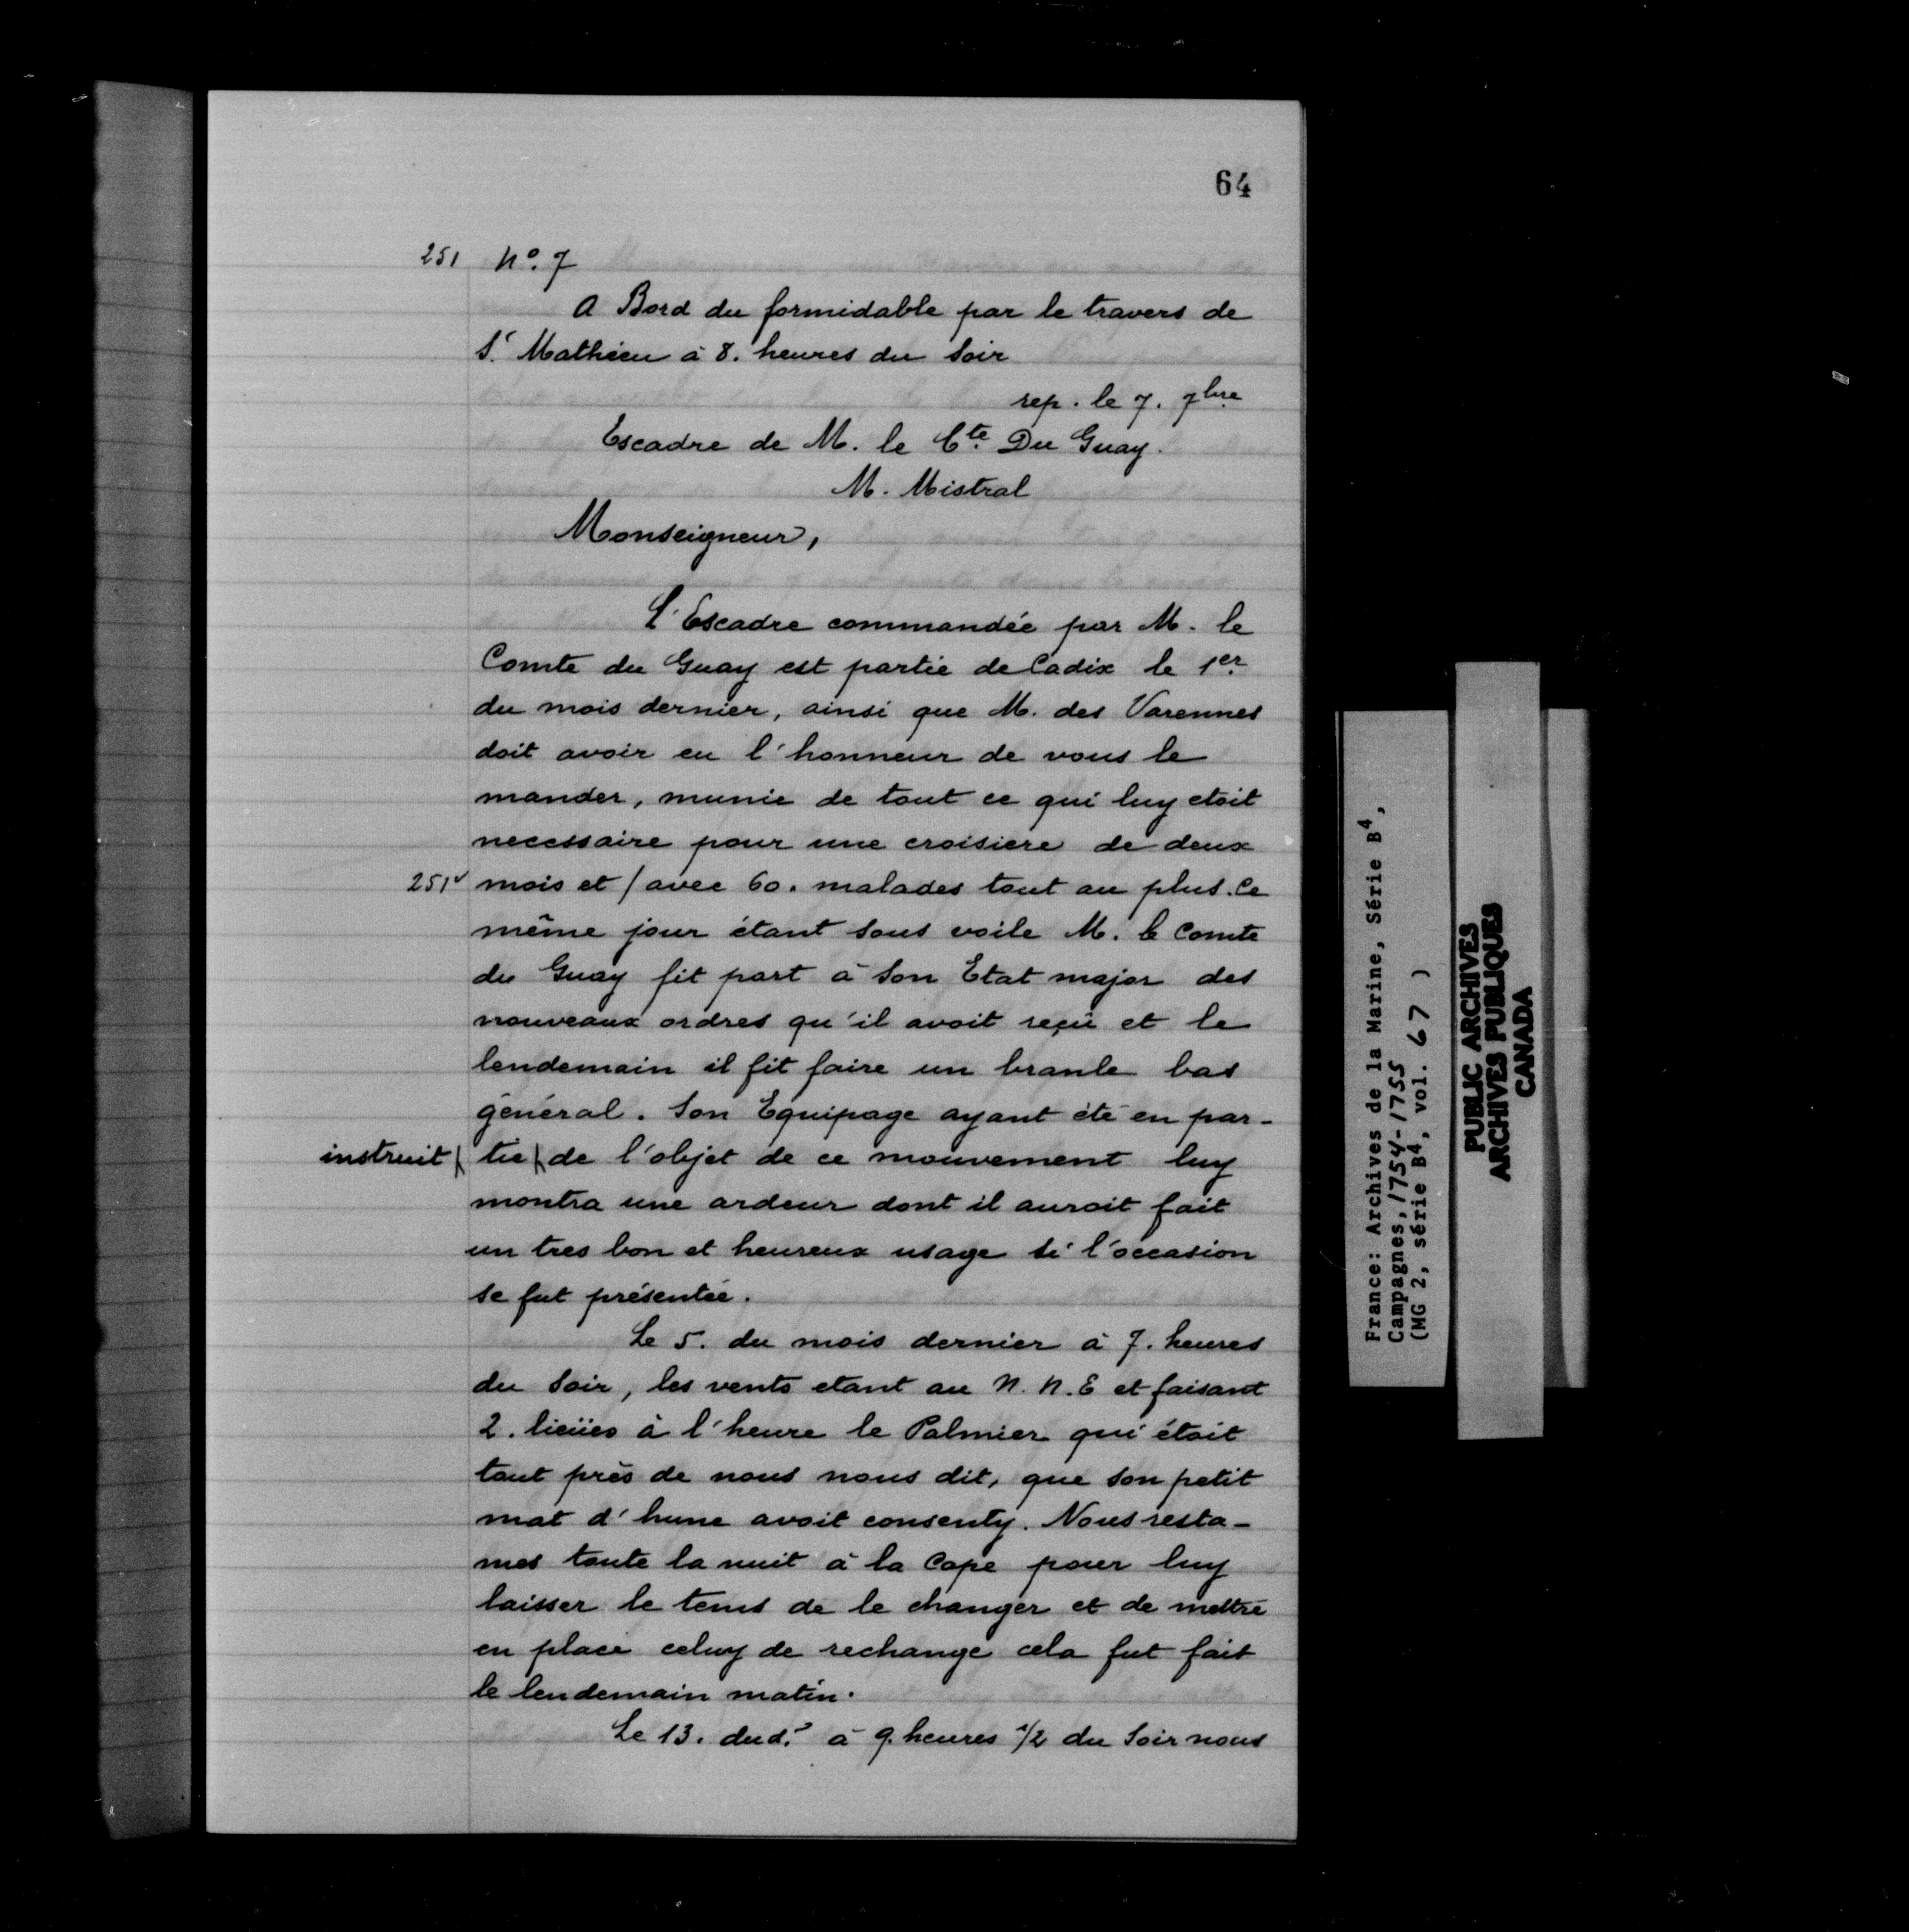 64
251 No. 7
A Bord du formidable par le travers de
St. Mathieu à 8. heures du Soir
rep. le 7. 7bre
Escadre de M. le Cte. Du Guay.
M. Mistral
Monseigneur,
L'Escadre commandée par M. le
Comte du Guay est partie de Cadix le 1er
du mois dernier, ainsi que M. des Varennes
doit avoir eu l'honneur de vous le
mander, munie de tout ce qui luy etoit
necessaire pour une croisiere de deux
251v mois et / avec 60. malades tout au plus. Ce
même jour étant sous voile M. le Comte
du Guay fit part à son Etat major des
nouveaux ordres qu'il avoit reçû et le
lendemain il fit faire un branle bas
général. Son Equipage ayant été en par-
instruit / tie / de l'objet de ce mouvement luy
montra une ardeur dont il auroit fait
un tres bon et heureux usage si l'occasion
se fut présentée.
Le 5. du mois dernier à 7. heures
du Soir, les vents etant au N. N. E et faisant
2. lieües à l'heure le Palmier qui étoit
tout près de nous nous dit, que son petit
mat d'hune avoit consenty. Nous resta-
mes toute la nuit à la Cape pour luy
laisser le tems de le changer et de mettre
en place celuy de rechange cela fut fait
le lendemain matin.
Le 13. dud.t à 9. heures 1/2 du Soir nous
France: Archives de la Marine, Série B4,
Campagnes, 1754-1755
(MG 2, série B4, vol. 67 )
PUBLIC ARCHIVES
ARCHIVES PUBLIQUES
CANADA